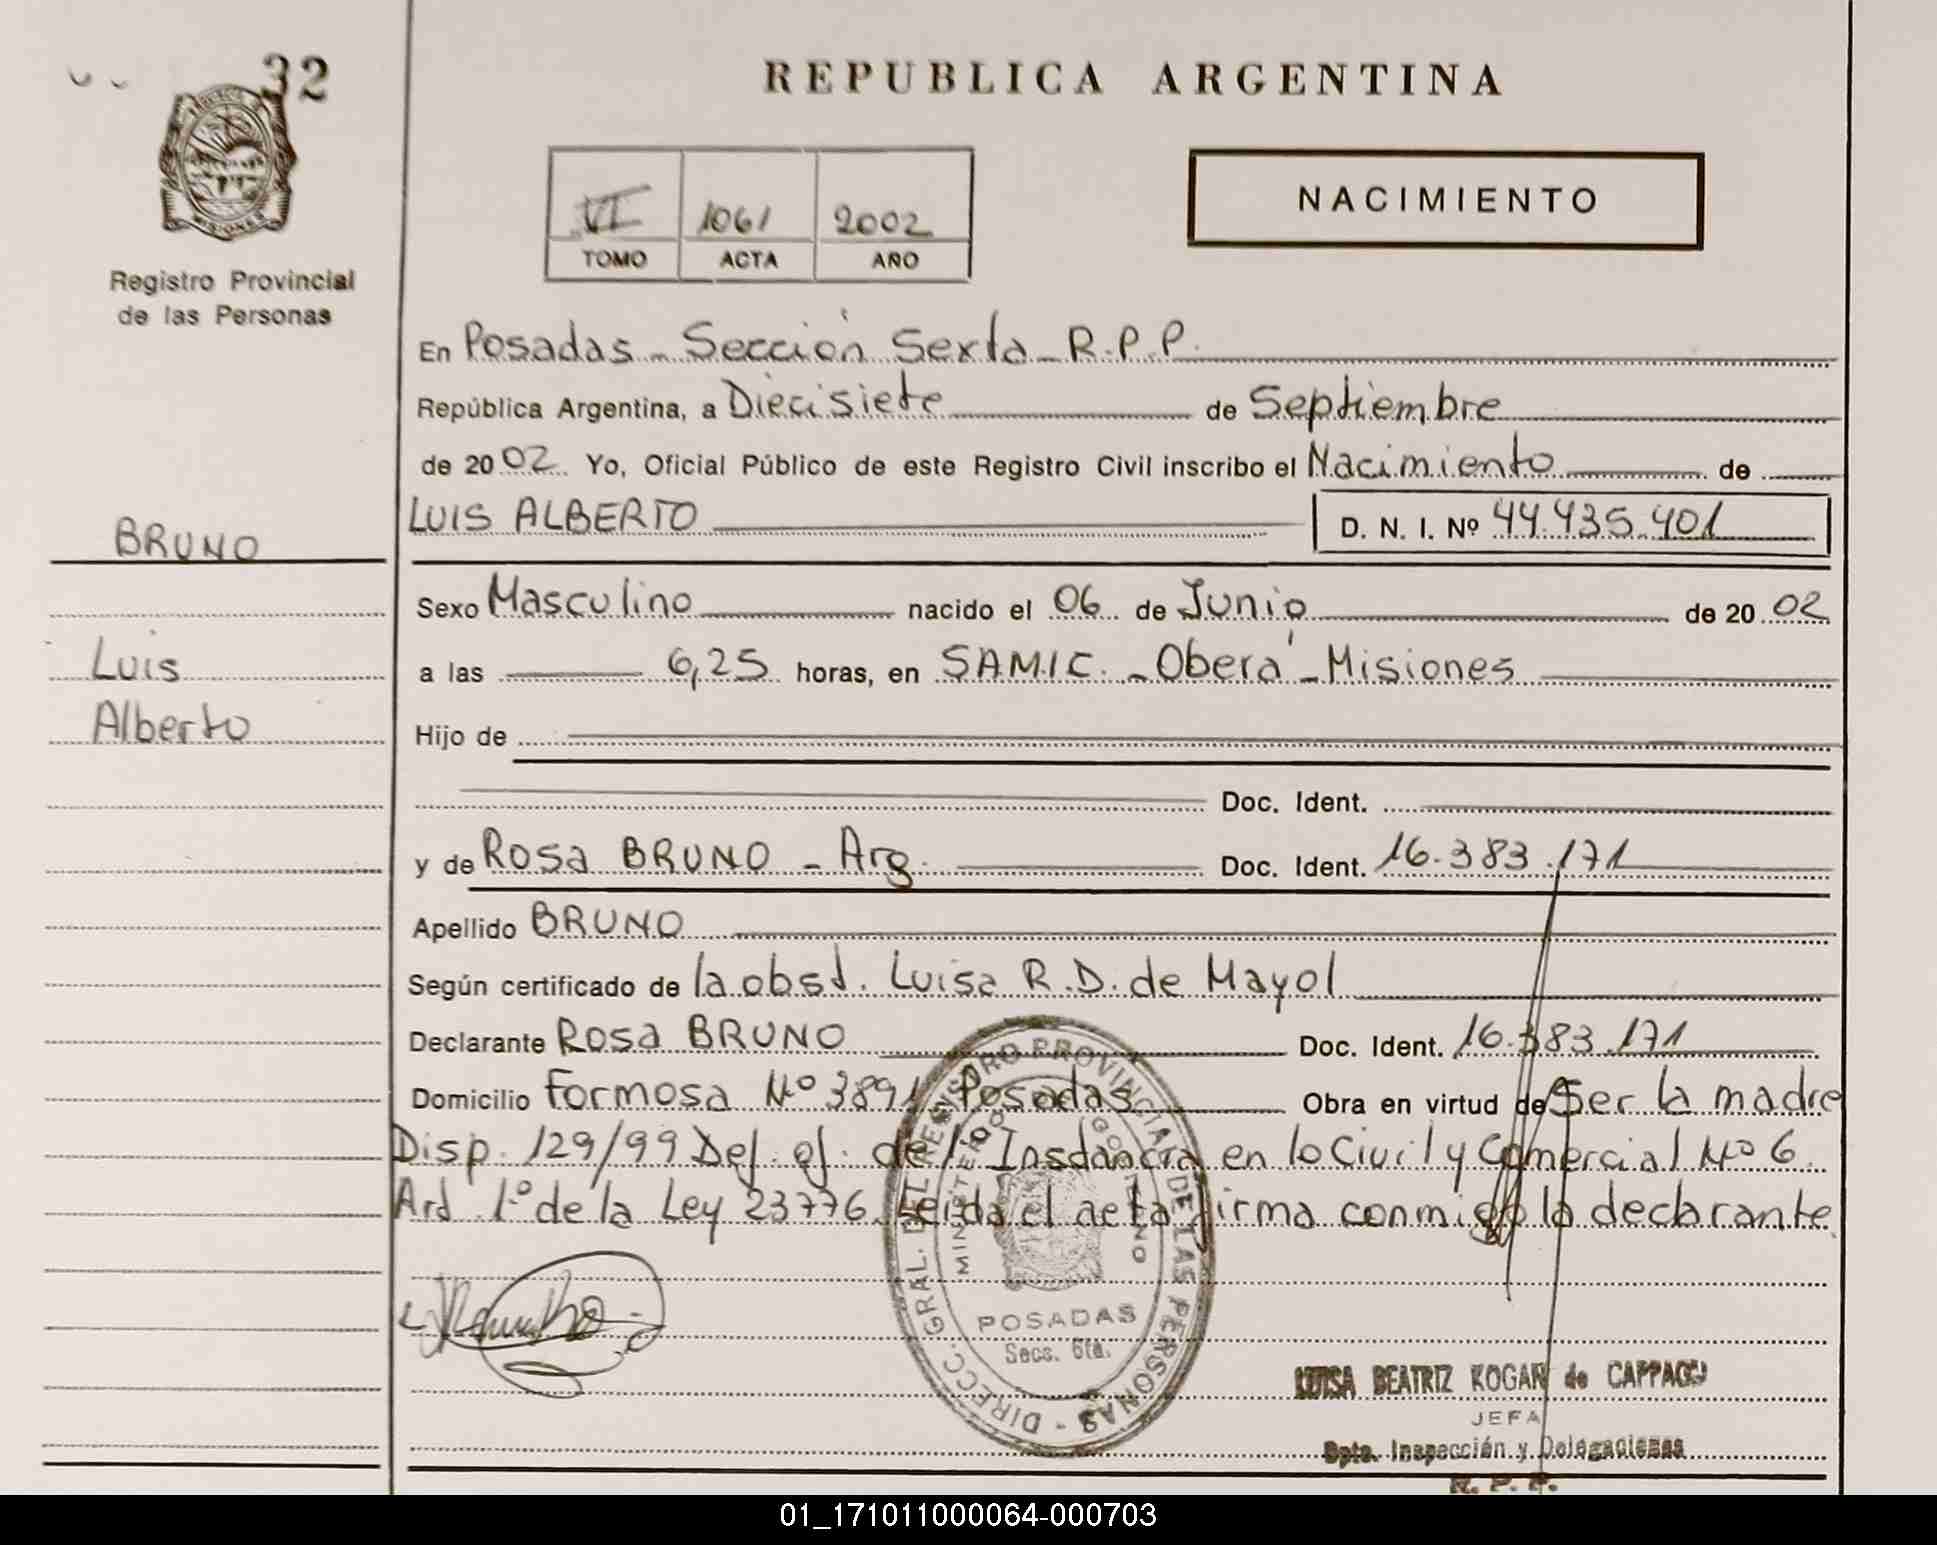 32
REPUBLICA ARGENTINA
VI 1061 2002
TOMO ACTA AÑO
NACIMIENTO
MISIONES
Registro Provincial
de las Personas
En Posadas - Sección Sexta - R.P.P.
República Argentina, a Diecisiete de Septiembre
de 2002 Yo, Oficial Público de este Registro Civil inscribo el Nacimiento de
LUIS ALBERTO D. N. I. Nº 44.435.401
BRUNO
Sexo Masculino nacido el 06 de Junio de 2002
Luis
a las 6,25 horas, en SAMIC. - Oberá - Misiones
Alberto
Hijo de
Doc. Ident.
y de Rosa BRUNO - Arg. Doc. Ident. 16.383.171
Apellido BRUNO
Según certificado de la obst. Luisa R.D. de Mayol
Declarante Rosa BRUNO Doc. Ident. 16.383.171
Domicilio Formosa Nº 3891 Posadas Obra en virtud de Ser la madre
Disp. 129/99 Def. of. de 1º Instancia en lo Civil y Comercial Nº 6
Art 1º de la Ley 23776. Leida el acta firma conmigo la declarante
DIRECC. GRAL. DEL REGISTRO PROVINCIAL DE LAS PERSONAS
MINISTERIO GOBIERNO
POSADAS
Secc. 6ta.
LUISA BEATRIZ KOGAN de CAPPAGU
JEFA
Dpto. Inspección y Delegaciones
R. P. P.
01_171011000064-000703